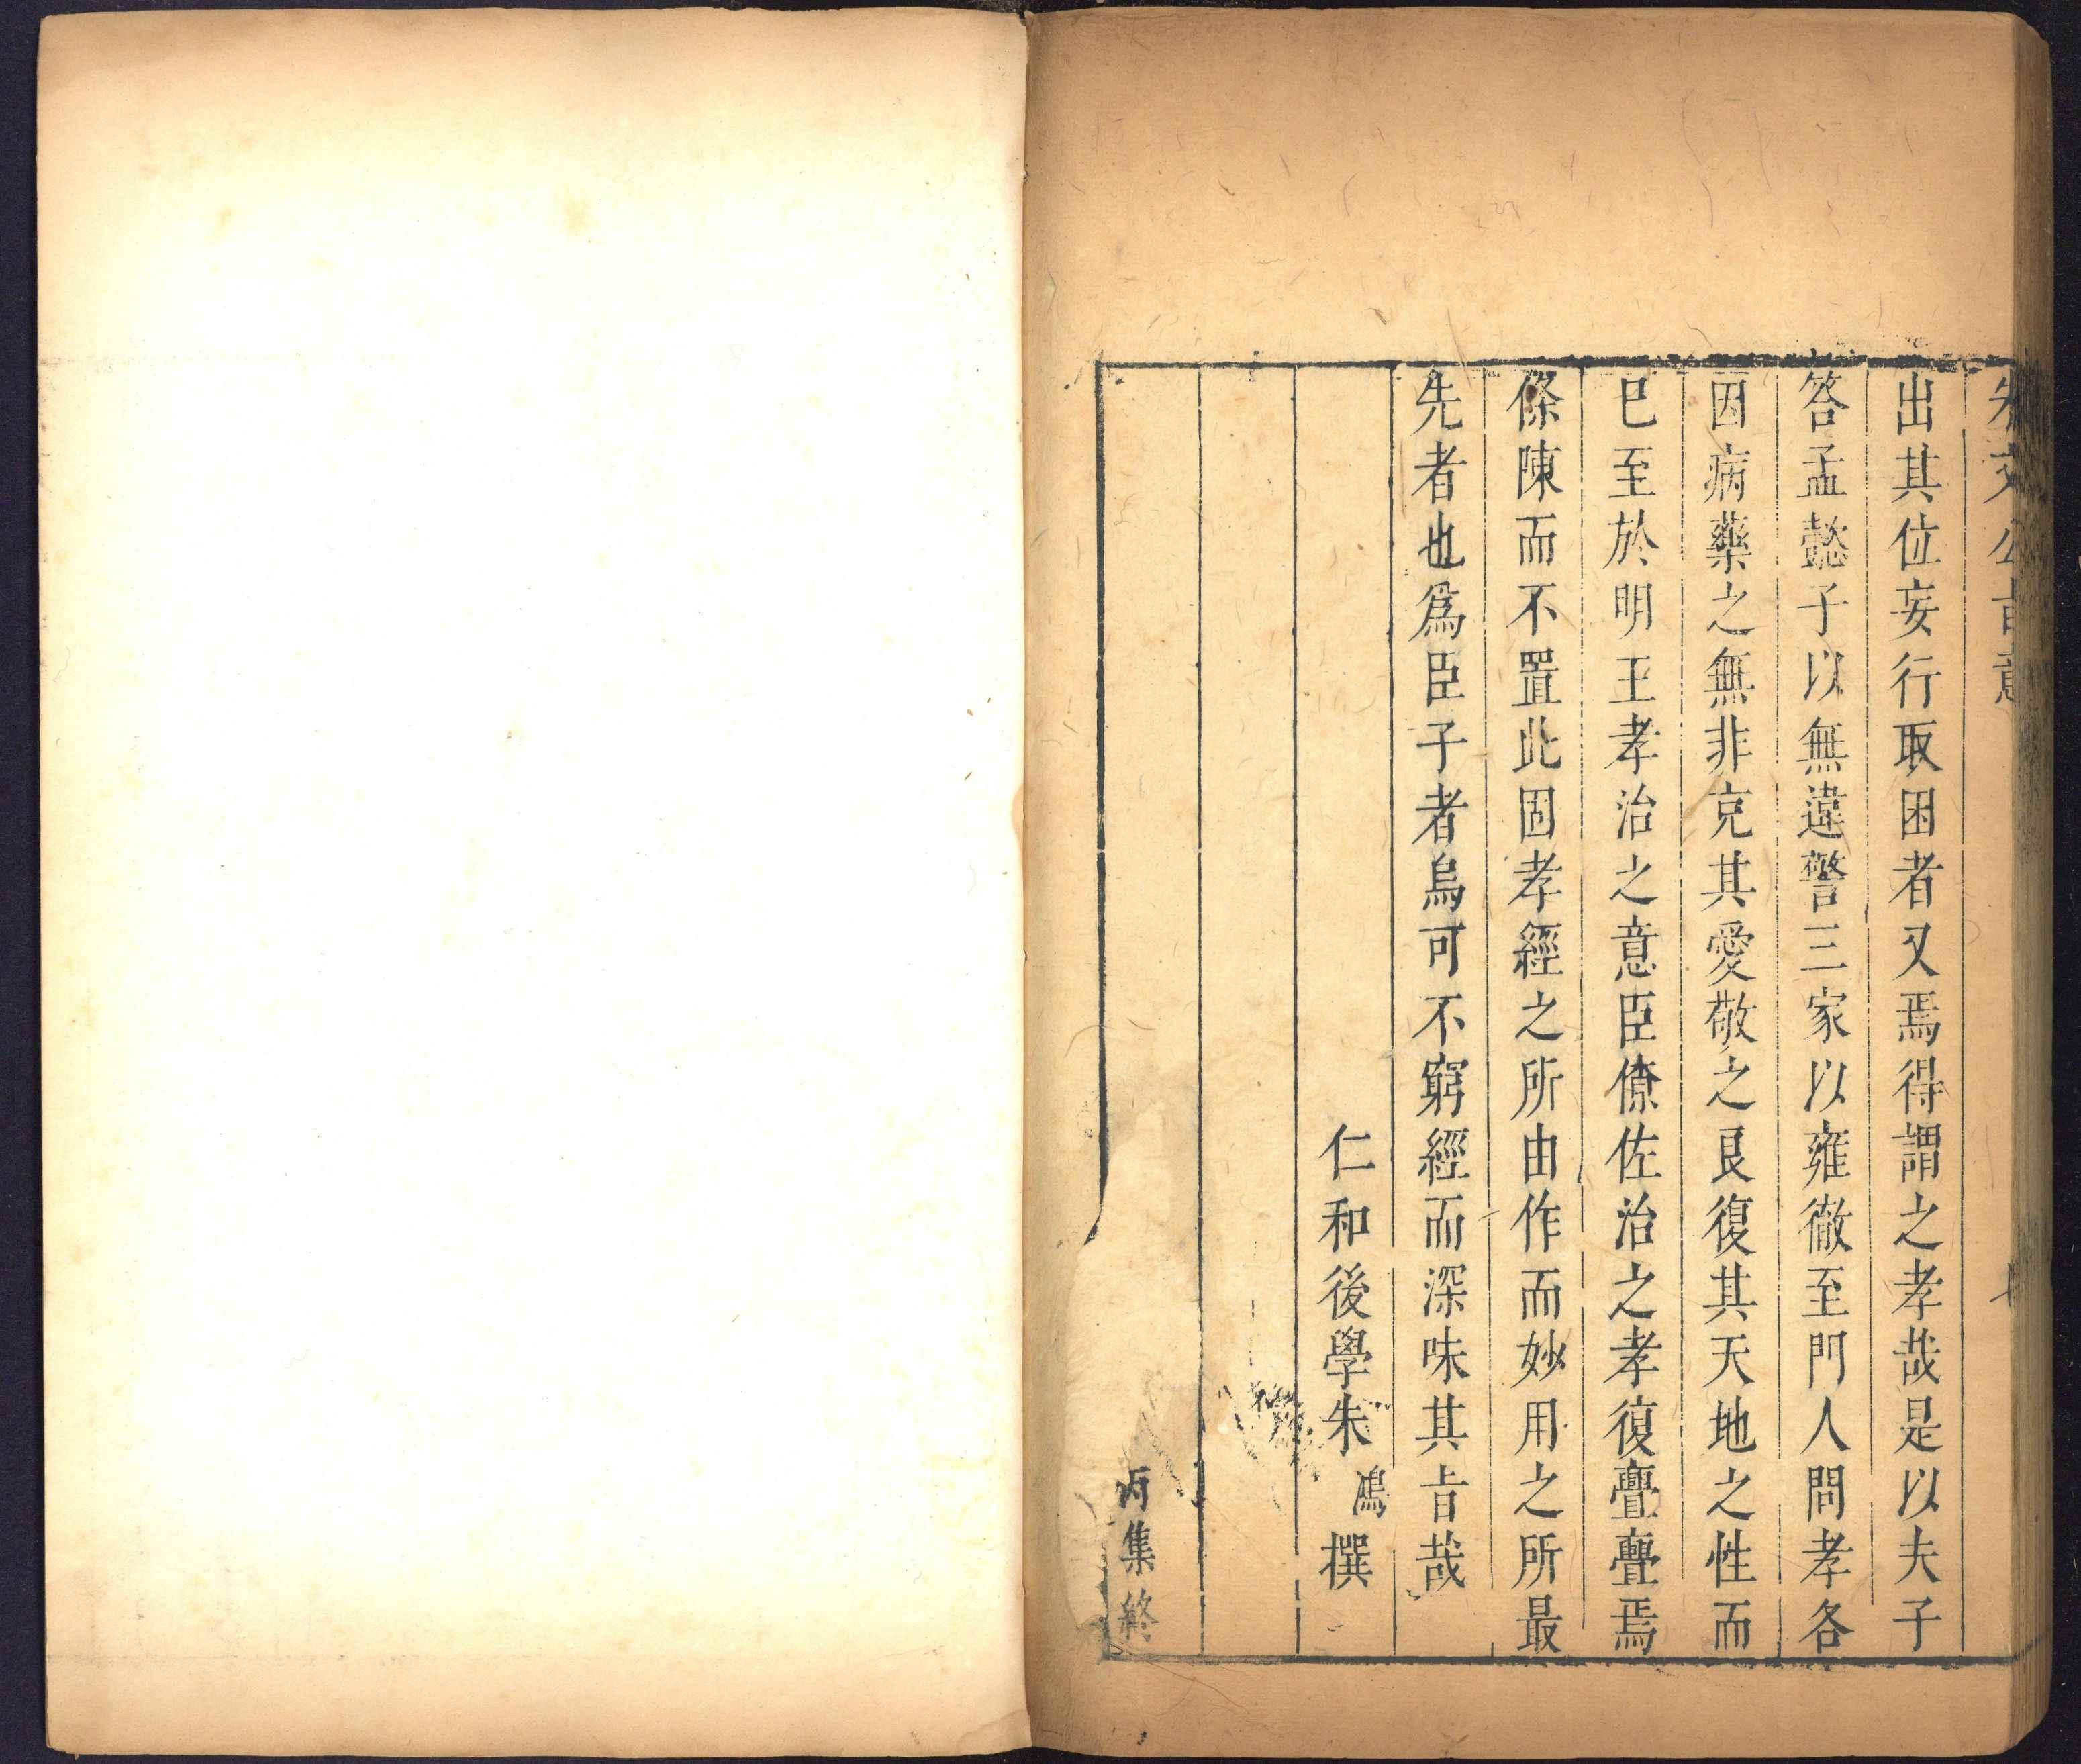 朱文公旨意
出其位妄行取困者又焉得謂之孝哉是以夫子
答孟懿子以無違警三家以雍徹至門人問孝各
因病藥之無非克其愛敬之良復其天地之性而
已至於明王孝治之意臣僚佐治之孝復亹亹焉
條陳而不置此固孝經之所由作而妙用之所最
先者也爲臣子者烏可不窮經而深味其旨哉
仁和後學朱鴻撰
丙集終